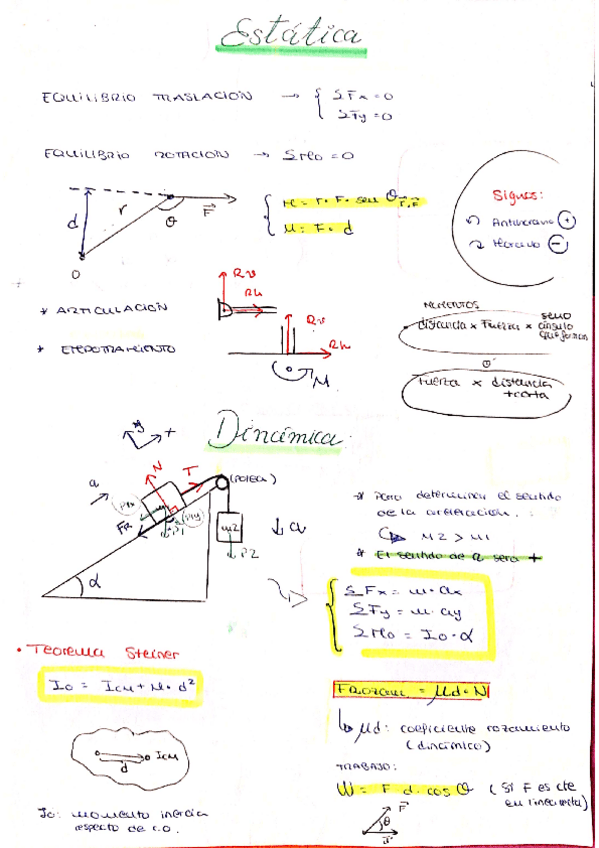 Estática
EQUILIBRIO TRASLACIÓN → { ΣFx = 0
ΣFy = 0
EQUILIBRIO ROTACIÓN → ΣMo = 0
d r θ F
O
M = r · F · sen θ r,F
M = F · d
Signos:
Antihorario +
Horario −
* ARTICULACIÓN
Rv
Rh
* EMPOTRAMIENTO
Rv
Rh
M
MOMENTOS
• distancia x Fuerza x seno ángulo que forman
o
Fuerza x distancia + corta
Dinámica
y +
a N T (POLEA)
P1x FR P1 P1y
m2 P2 a
α
* Para determinar el sentido
de la aceleración.
M2 > M1
* El sentido de a será +
ΣFx = m · ax
ΣFy = m · ay
ΣMo = Io · α
• Teorema Steiner
Io = Icm + M · d²
d Icm
Io: momento inercia
respecto de c.o.
FRozam = μd · N
μd: coeficiente rozamiento
(dinámico)
TRABAJO:
W = F · d · cos θ (Si F es cte
en línea recta)
F
θ